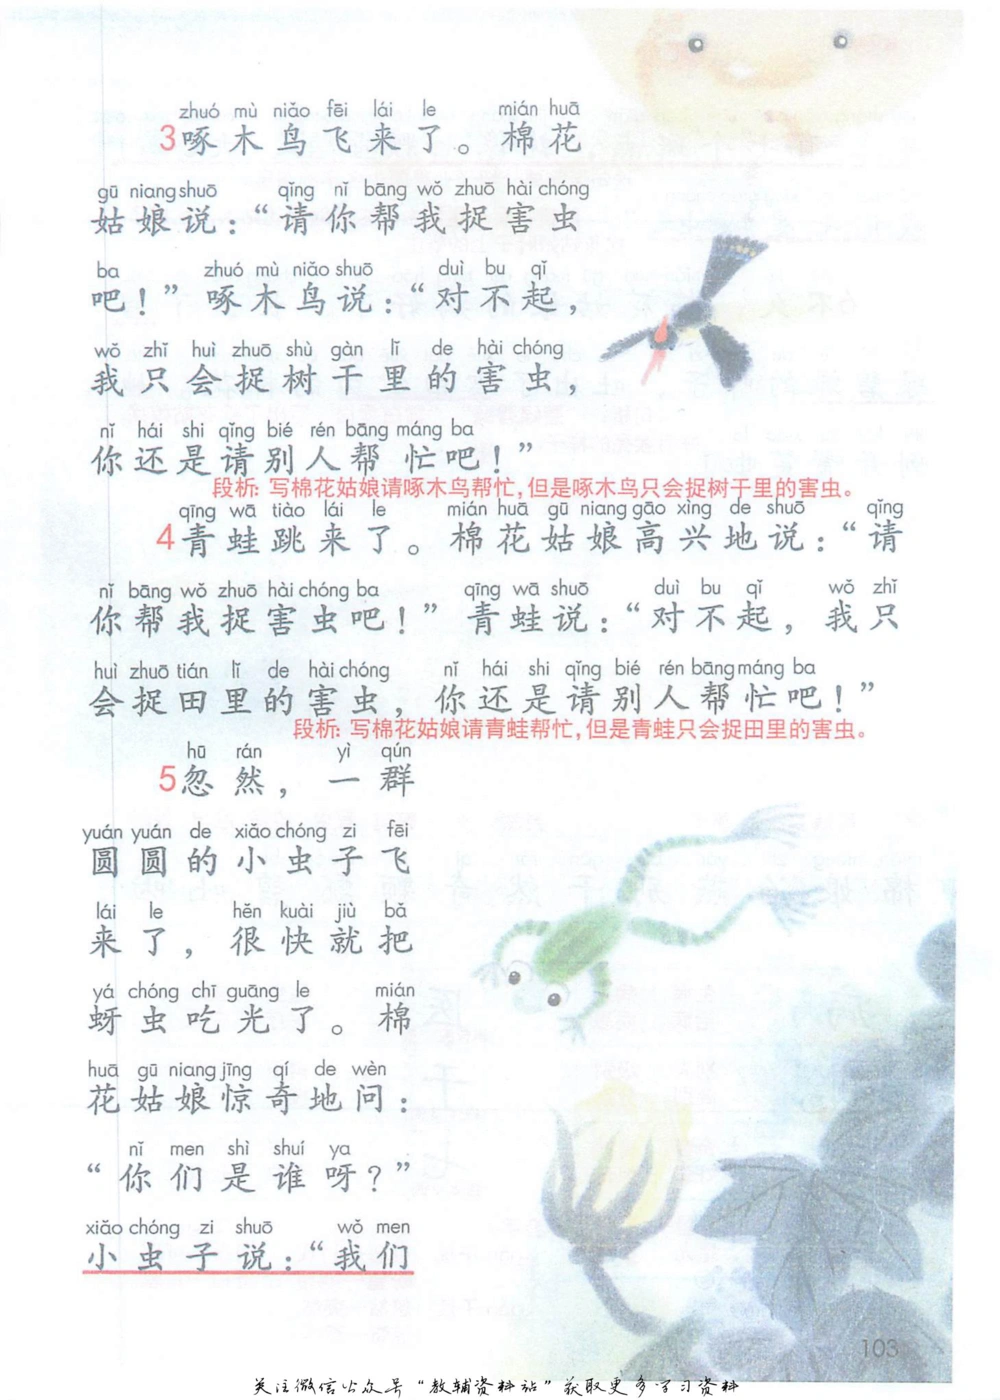 zhuó mù niǎo fēi lái le mián huā
3啄木鸟飞来了。棉花
gū niang shuō qǐng nǐ bāng wǒ zhuō hài chóng
姑娘说：“请你帮我捉害虫
ba zhuó mù niǎo shuō duì bu qǐ
吧！”啄木鸟说：“对不起，
wǒ zhǐ huì zhuō shù gàn lǐ de hài chóng
我只会捉树干里的害虫，
nǐ hái shi qǐng bié rén bāng máng ba
你还是请别人帮忙吧！”
段析：写棉花姑娘请啄木鸟帮忙，但是啄木鸟只会捉树干里的害虫。
qīng wā tiào lái le mián huā gū niang gāo xìng de shuō qǐng
4青蛙跳来了。棉花姑娘高兴地说：“请
nǐ bāng wǒ zhuō hài chóng ba qīng wā shuō duì bu qǐ wǒ zhǐ
你帮我捉害虫吧！”青蛙说：“对不起，我只
huì zhuō tián lǐ de hài chóng nǐ hái shi qǐng bié rén bāng máng ba
会捉田里的害虫，你还是请别人帮忙吧！”
段析：写棉花姑娘请青蛙帮忙，但是青蛙只会捉田里的害虫。
hū rán yì qún
5忽然，一群
yuán yuán de xiǎo chóng zi fēi
圆圆的小虫子飞
lái le hěn kuài jiù bǎ
来了，很快就把
yá chóng chī guāng le mián
蚜虫吃光了。棉
huā gū niang jīng qí de wèn
花姑娘惊奇地问：
nǐ men shì shuí ya
“你们是谁呀？”
xiǎo chóng zi shuō wǒ men
小虫子说：“我们
103
关注微信公众号“教辅资料站”获取更多学习资料